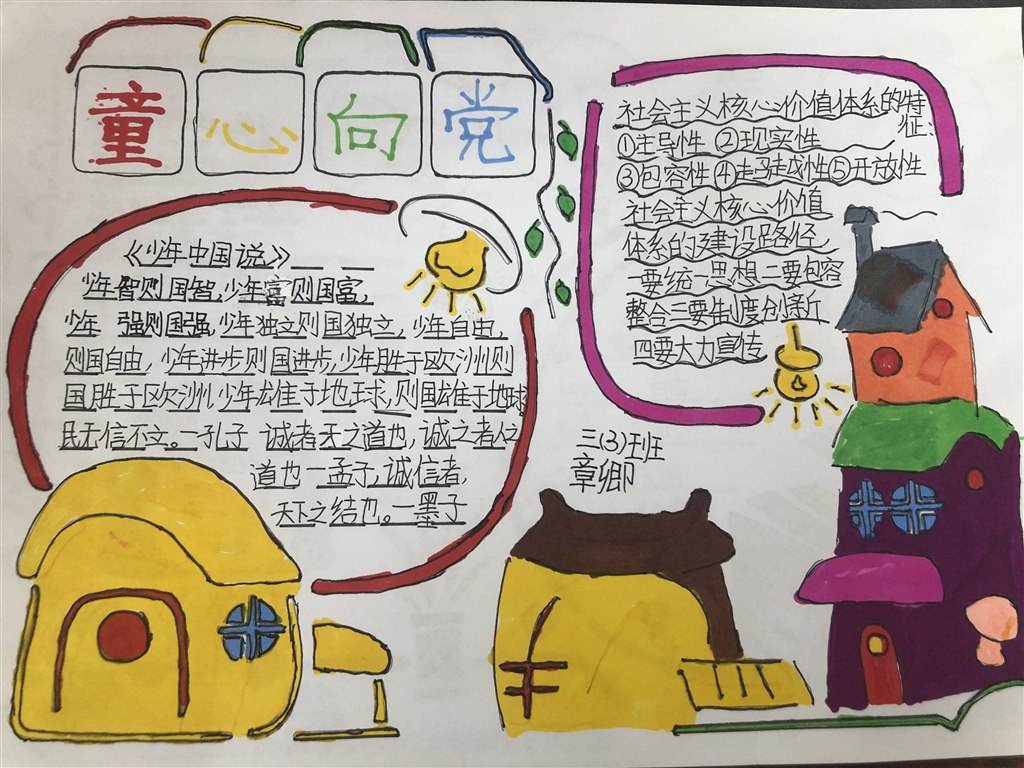 童心向党
《少年中国说》
少年智则国智,少年富则国富,
少年 强则国强,少年独立则国独立,少年自由,
则国自由,少年进步则国进步,少年胜于欧洲则
国胜于欧洲,少年雄于地球,则国雄于地球
民无信不文。一孔子 诚者天之道也,诚之者人之
道也一孟子,诚信者,
天下之结也。一墨子
社会主义核心价值体系的特
征:
①主导性 ②现实性
③包容性④超越性⑤开放性
社会主义核心价值
体系的建设路径
一要统一思想二要包容
整合三要制度创新
四要大力宣传
三(3)班
章卿